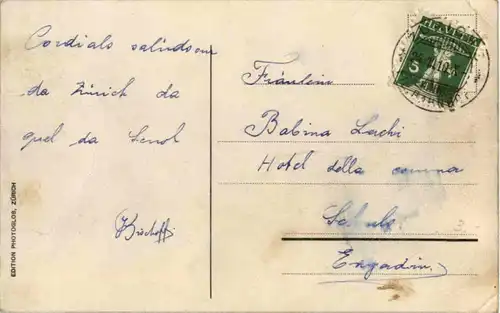 Cordials salüds our
da Zürich da
quel da Scuol
Bischoff
EDITION PHOTOGLOB, ZÜRICH
HELVETIA
5
Fräulein
Babina
Hotel della
Schuls
Engadin